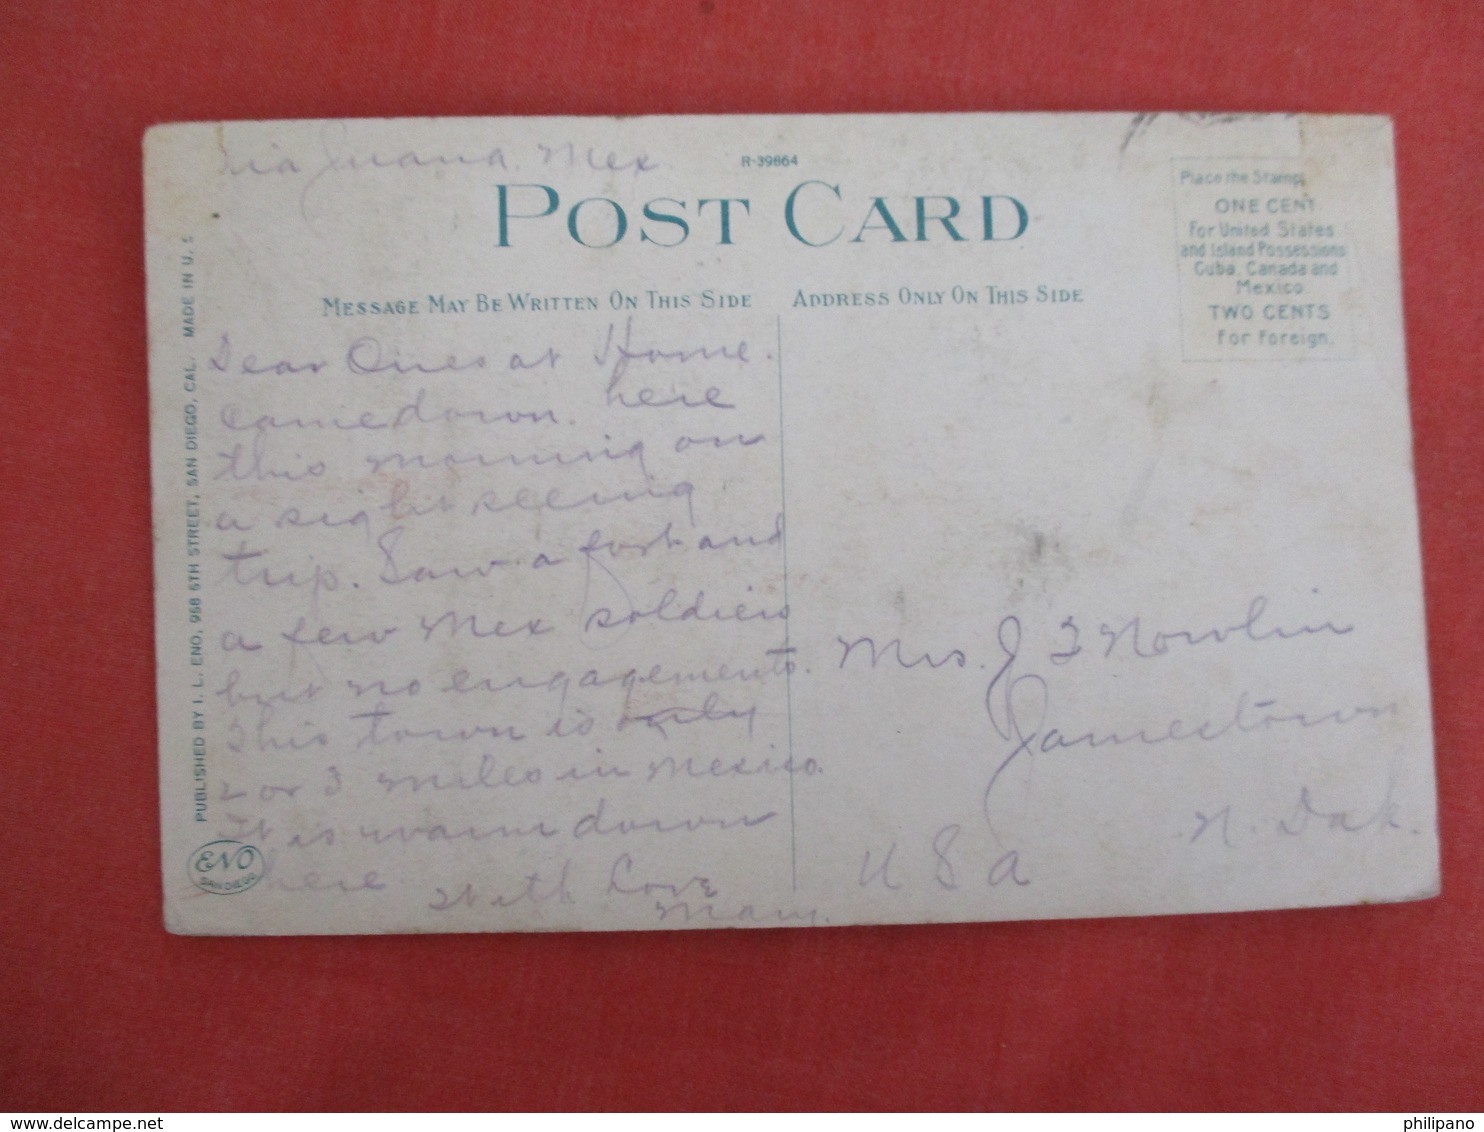 Tia Juana. Mex
R-39864
POST CARD
Place the Stamp
ONE CENT
For United States
and Island Possessions
Cuba, Canada and
Mexico
TWO CENTS
For Foreign.
MESSAGE MAY BE WRITTEN ON THIS SIDE
ADDRESS ONLY ON THIS SIDE
Dear Ones at Home.
Came down here
this morning on
a sight seeing
trip. Saw a fort and
a few Mex soldiers
but no engagements.
This town is only
2 or 3 miles in Mexico.
It is warm down
here
With Love
Mary.
Mrs. J F Nowlin
Jamestown
N. Dak.
U S A
PUBLISHED BY I. L. ENO, 968 5TH STREET, SAN DIEGO, CAL. MADE IN U. S
ENO
SAN DIEGO
http://www.delcampe.net
philipano